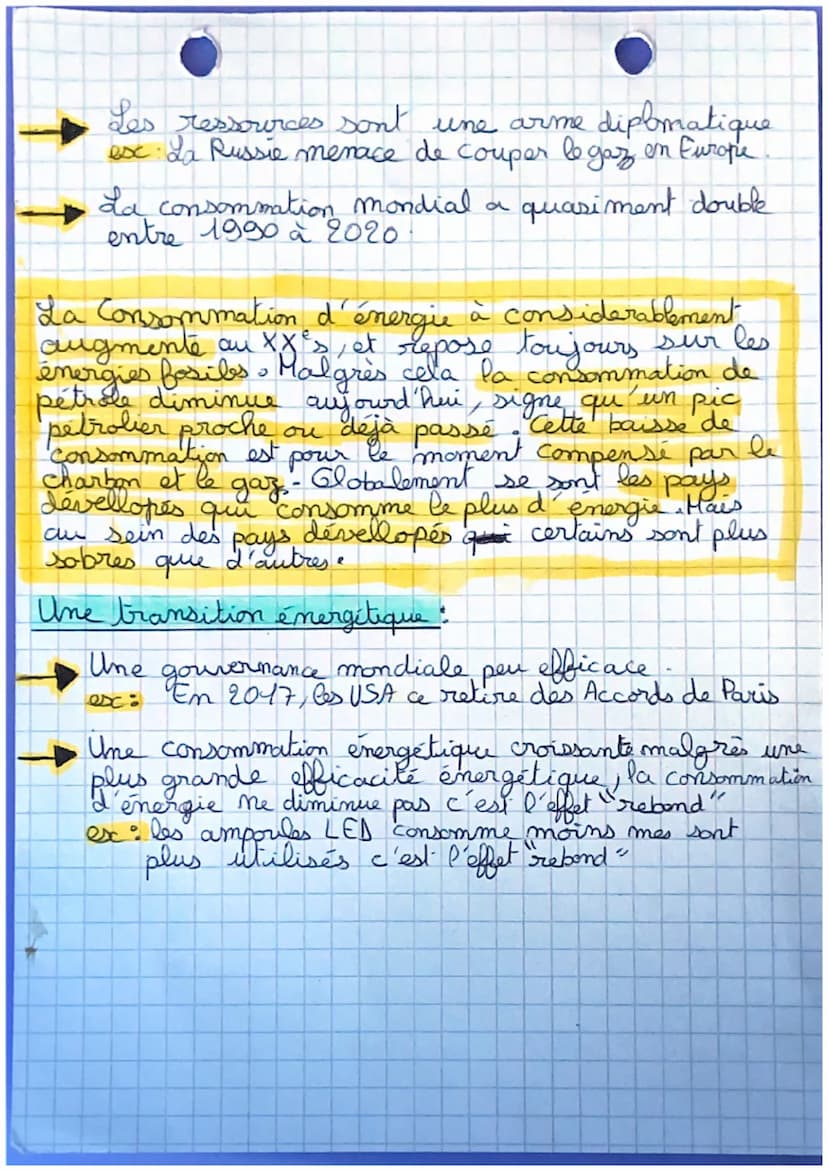 Les ressources sont une arme diplomatique
ex: La Russie menace de couper le gaz en Europe.
La consommation mondial a quasiment double
entre 1990 à 2020.
La Consommation d'énergie à considerablement
augmenté au XXe s, et repose toujours sur les
énergies fosiles. Malgrès cela la consommation de
pétrole diminue aujourd'hui, signe qu'un pic
pétrolier proche ou déjà passé. Cette baisse de
consommation est pour le moment compensé par le
charbon et le gaz. Globalement se sont les pays
dévellopés qui consomme le plus d'énergie. Mais
au sein des pays dévellopés certains sont plus
sobres que d'autres.
Une transition énergétique :
Une gouvernance mondiale peu efficace.
ex: En 2017, les USA ce retire des Accords de Paris
Une consommation énergétique croissante malgrès une
plus grande efficacité énergétique, la consommation
d'énergie ne diminue pas c'est l'effet "rebond"
ex: les ampoules LED consomme moins mes sont
plus utilisés c'est l'effet "rebond"